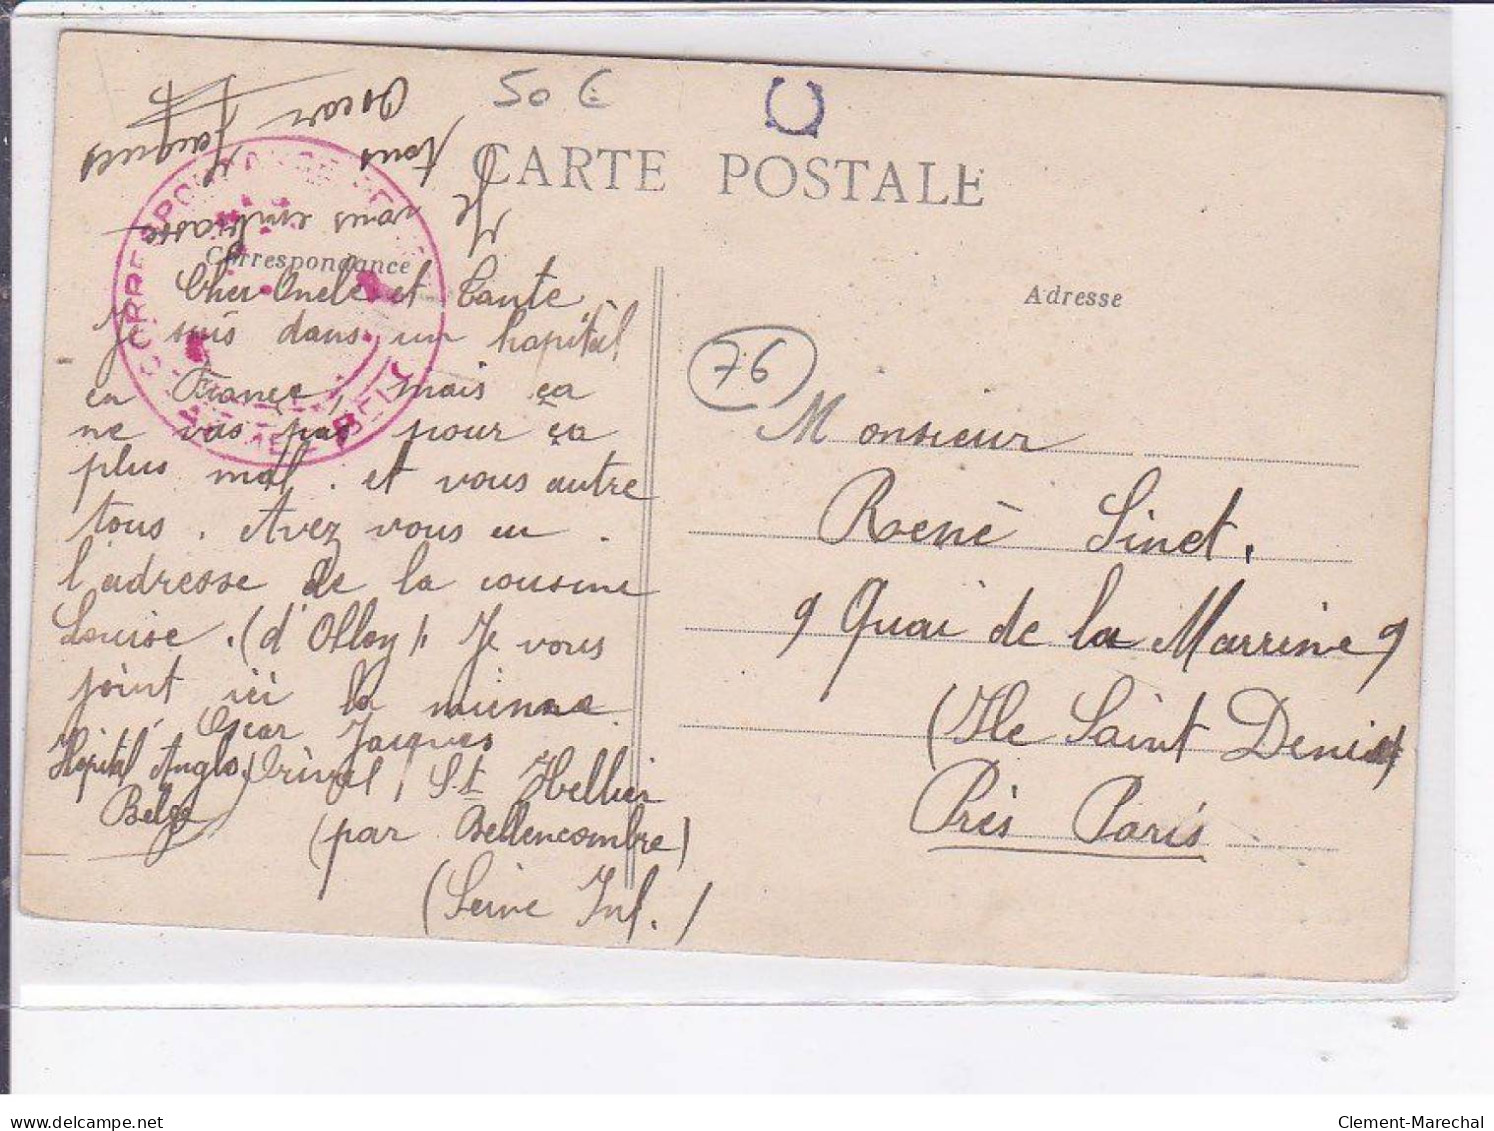 50 €
CARTE POSTALE
Correspondance
Cher Oncle et Tante
Je suis dans un hapital
en France, mais ça
ne vas pas pour ça
plus mal. et vous autre
tous. Avez vous eu
l'adresse de la cousine
Louise. (d'Olloy). Je vous
joint ici la mienne.
Oscar Jacques
Hôpital Anglo
Belge
St Hellier
(par Bellencombre)
(Seine Inf.)
Je vous embrasse
tous
Oscar Jacques
CORRESPONDANCE
Adresse
76
Monsieur
René Sinet,
9 Quai de la Marrine 9
(Ile Saint Denis)
Près Paris
www.delcampe.net
Clement-Marechal